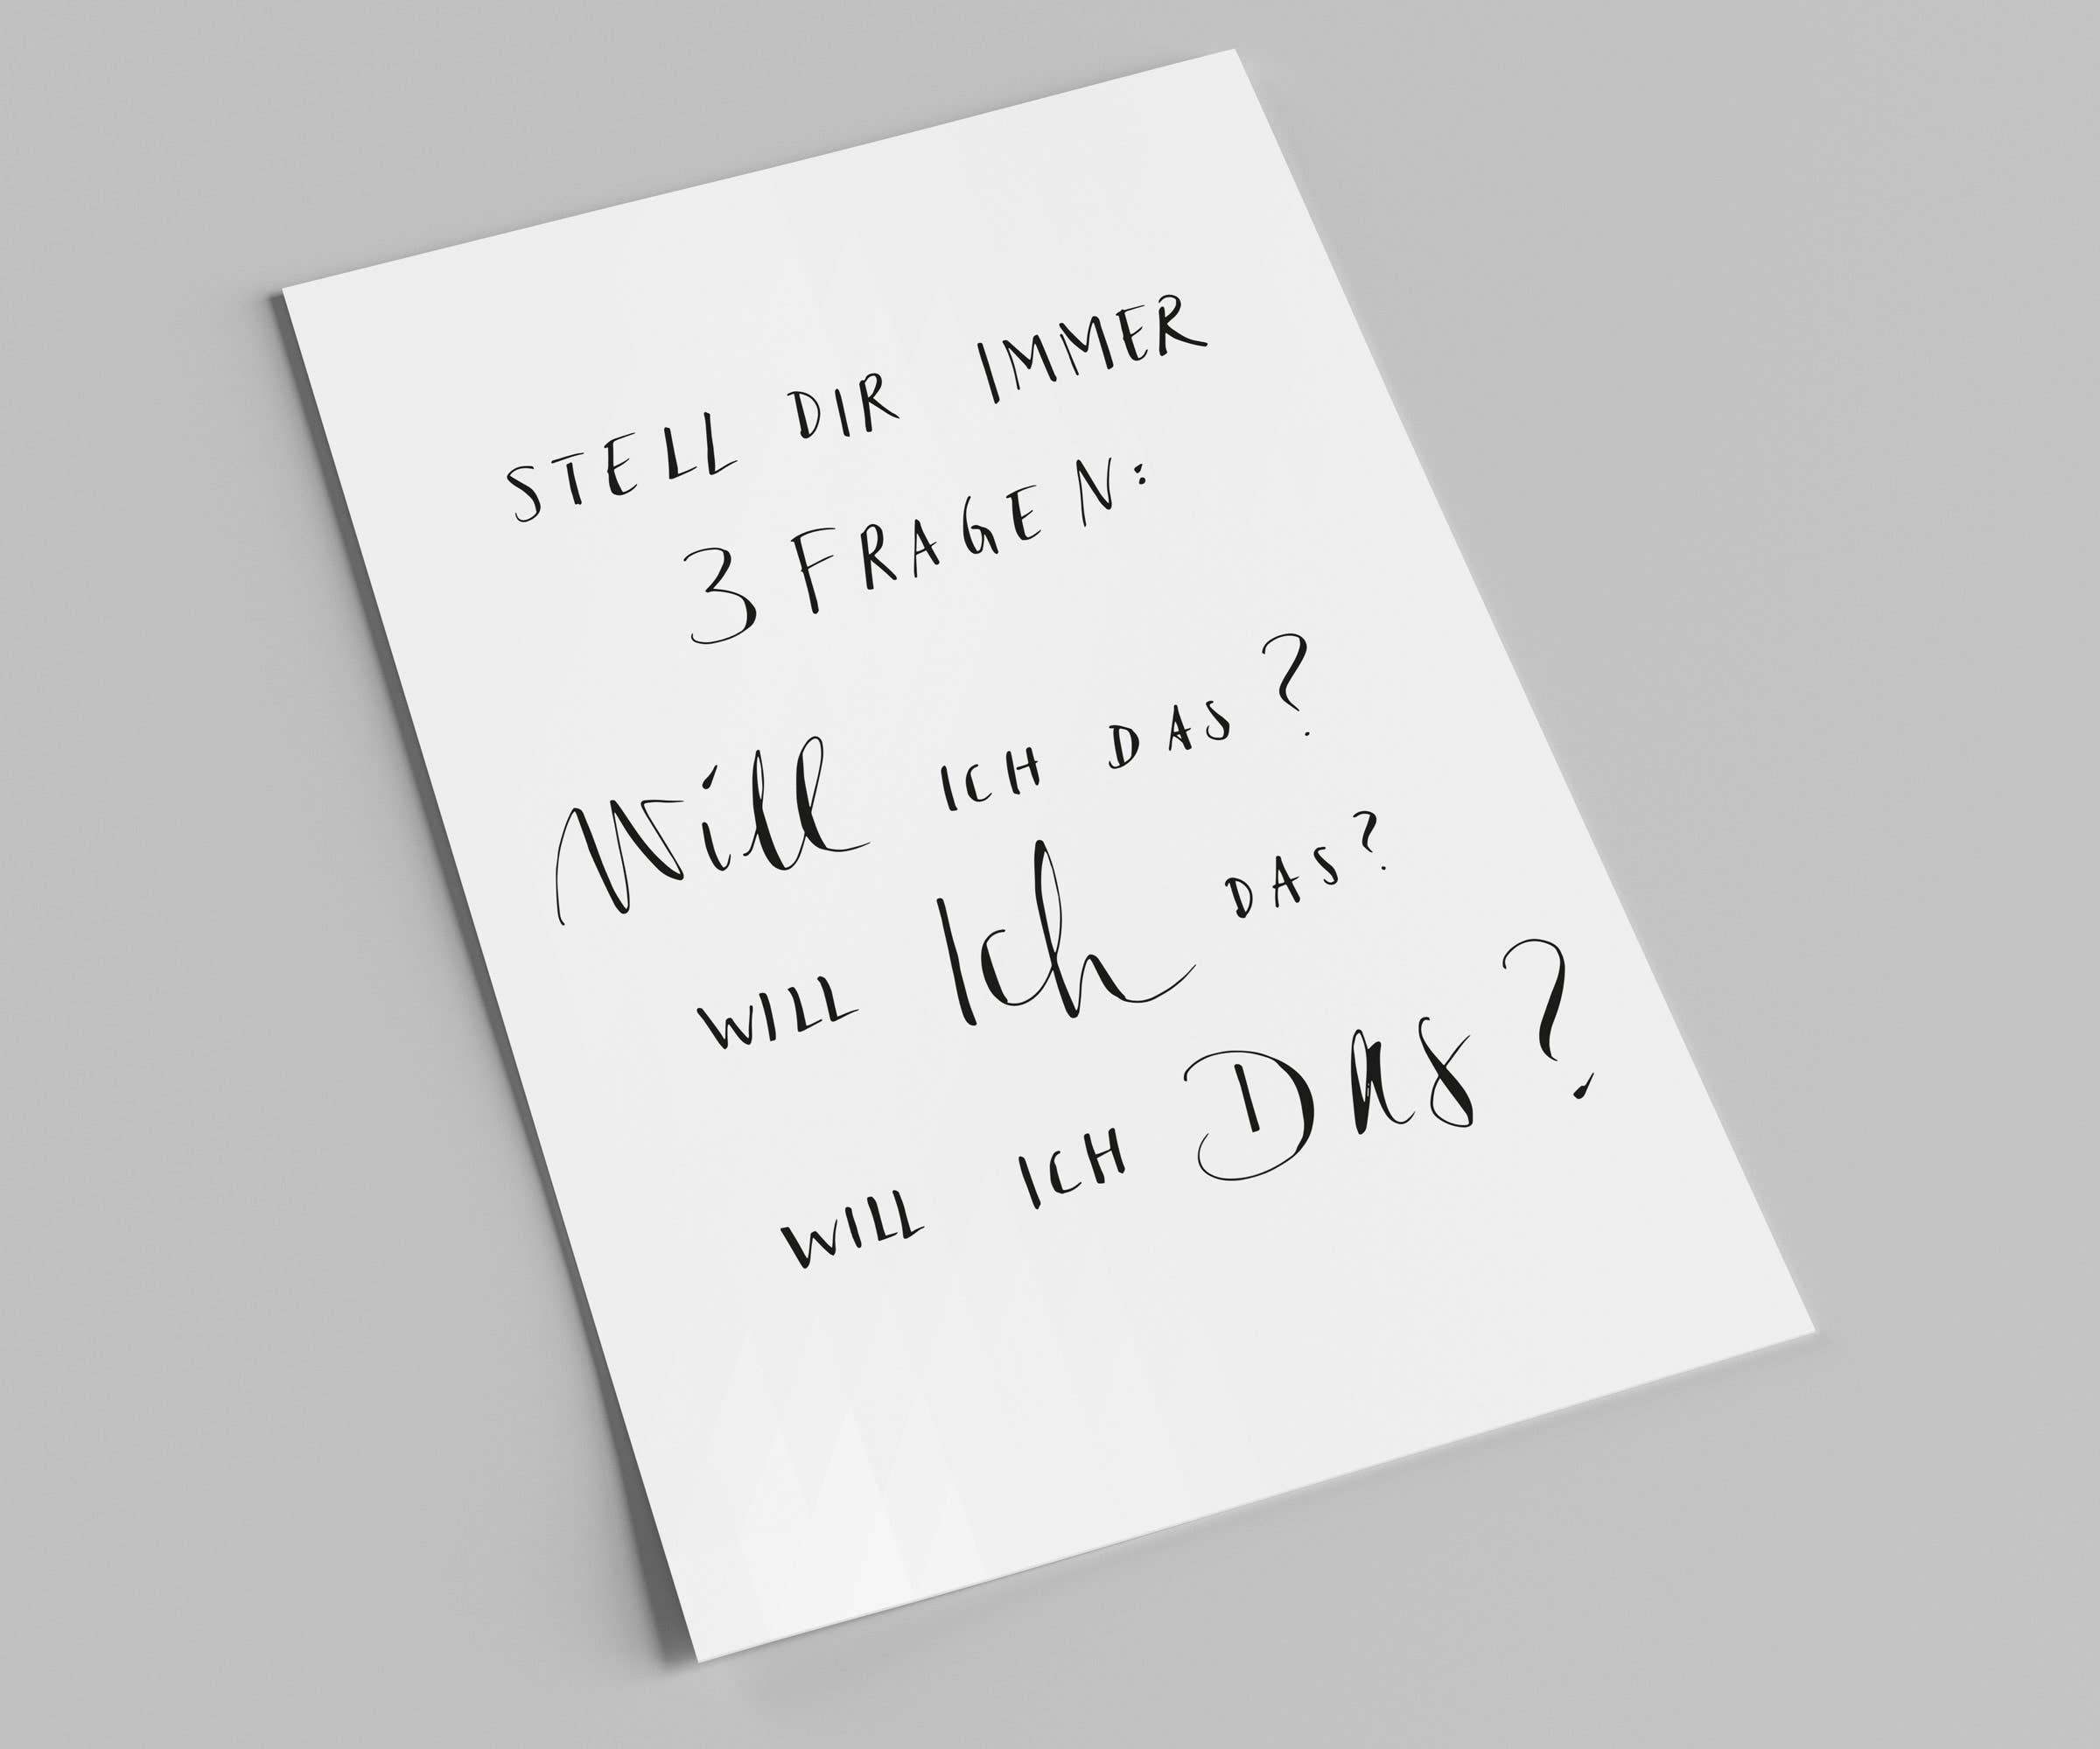 STELL DIR IMMER
3 FRAGEN:
Will ICH DAS?
WILL Ich DAS?
WILL ICH Das?